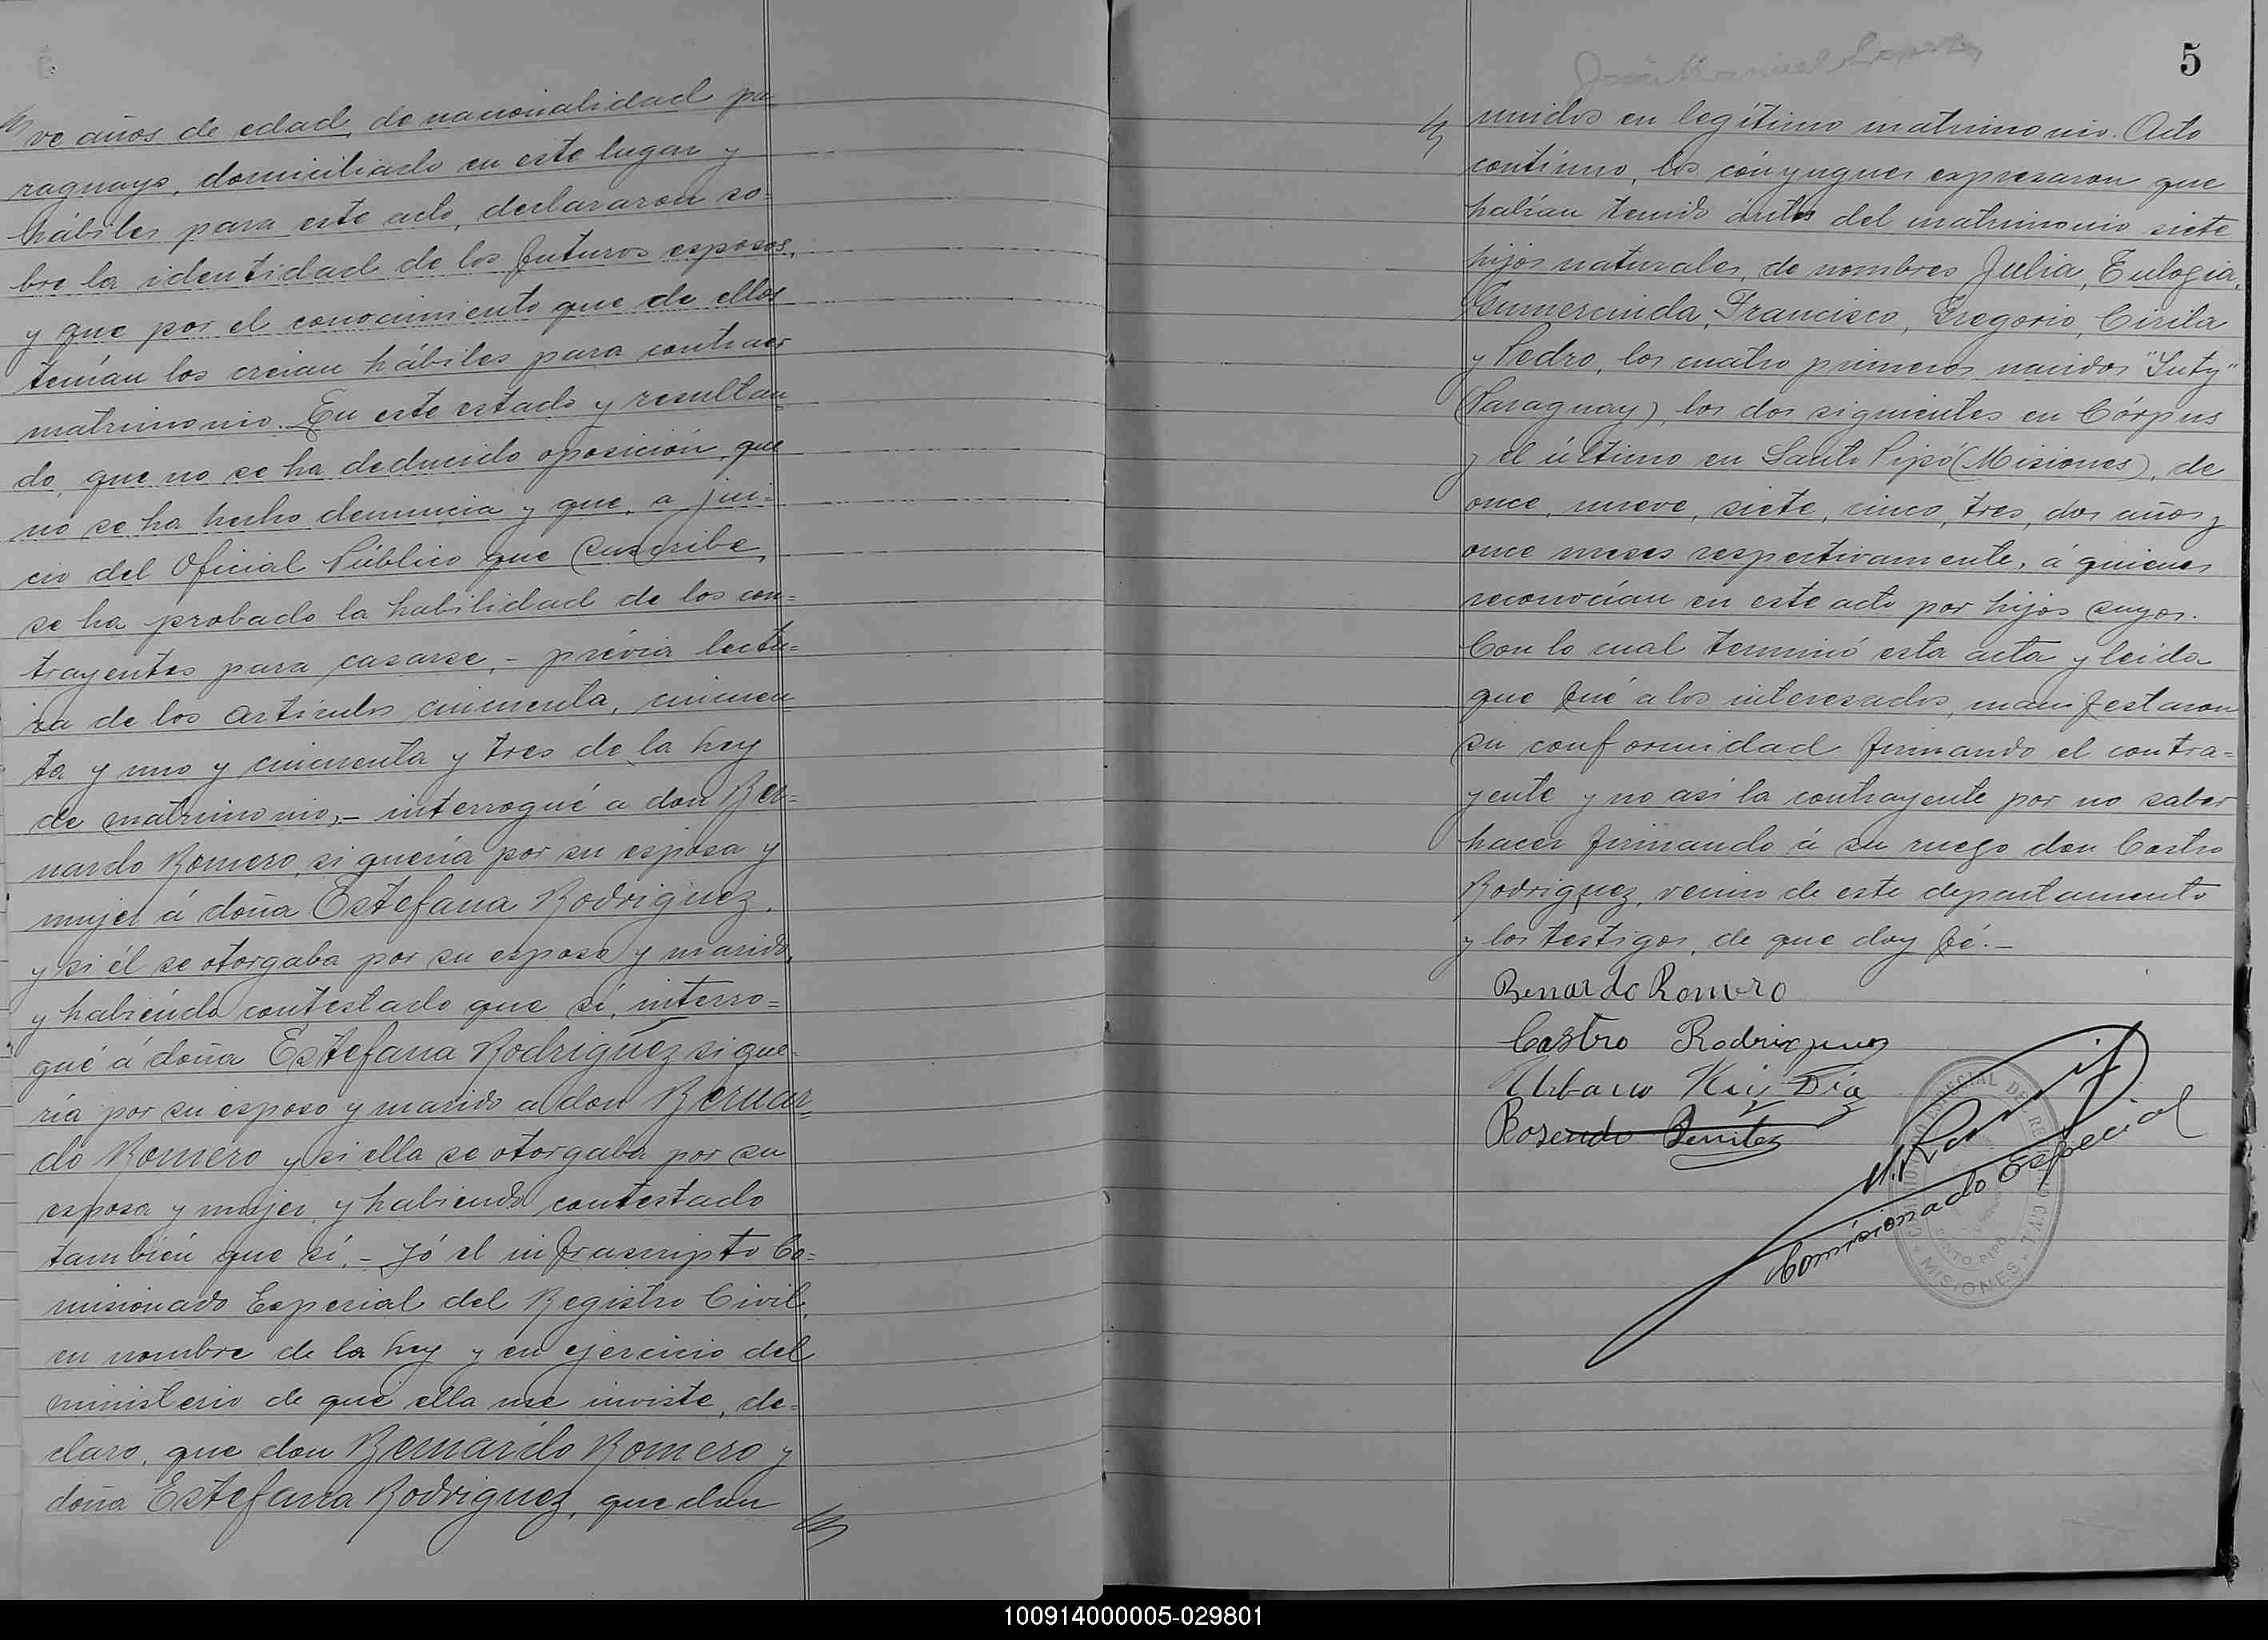 ve años de edad, de nacionalidad pa-
raguayo, domiciliado en este lugar y
hábiles para este acto, declararon so-
bre la identidad de los futuros esposos,
y que por el conocimiento que de ellos
tenían los creian hábiles para contraer
matrimonio. En este estado y resultan-
do, que no se ha deducido oposición, que
no se ha hecho denuncia y que, a jui=
cio del Oficial Público que suscribe,
se ha probado la habilidad de los con=
trayentes para casarse, - prévia lectu=
ra de los artículos cincuenta, cincuen-
ta y uno y cincuenta y tres de la ley
de matrimonio, - interrogué a don Ber=
nardo Romero, si quería por su esposa y
mujer á doña Estefana Rodriguez,
y si él se otorgaba por su esposo y marido,
y habiendo contestado que sí, interro=
gué á doña Estefana Rodriguez si que-
ría por su esposo y marido a don Bernar=
do Romero y si ella se otorgaba por su
esposa y mujer, y habiendo contestado
también que sí, - Yó el infrascripto Co=
misionado Especial del Registro Civil,
en nombre de la ley y en ejercicio del
ministerio de que ella me inviste, de=
claro, que don Bernardo Romero y
doña Estefana Rodriguez, quedan
5
José Manuel
unidos en legítimo matrimonio. Acto
contínuo, los cónyugues expresaron que
habían tenido ántes del matrimonio siete
hijos naturales, de nombres Julia, Eulogia,
Gumercinda, Francisco, Gregorio, Cirila
y Pedro, los cuatro primeros nacidos "Yuty"
(Paraguay), los dos siguientes en Córpus
y el último en Santo Pipó (Misiones), de
once, nueve, siete, cinco, tres, dos años y
once meses respectivamente, á quienes
reconocían en este acto por hijos suyos.
Con lo cual terminó esta acta y leida
que fué a los interesados, manifestaron
su conformidad firmando el contra=
yente y no así la contrayente por no saber
hacer firmando á su ruego don Castro
Rodriguez, vecino de este departamento
y los testigos, de que doy fé. -
Bernardo Romero
Castro Rodriguez
Urbano Ruiz Dia
Rosendo Benitez
Comisionado Especial
COMISIONADO ESPECIAL DEL REGISTRO CIVIL
SANTO PIPÓ
MISIONES
100914000005-029801